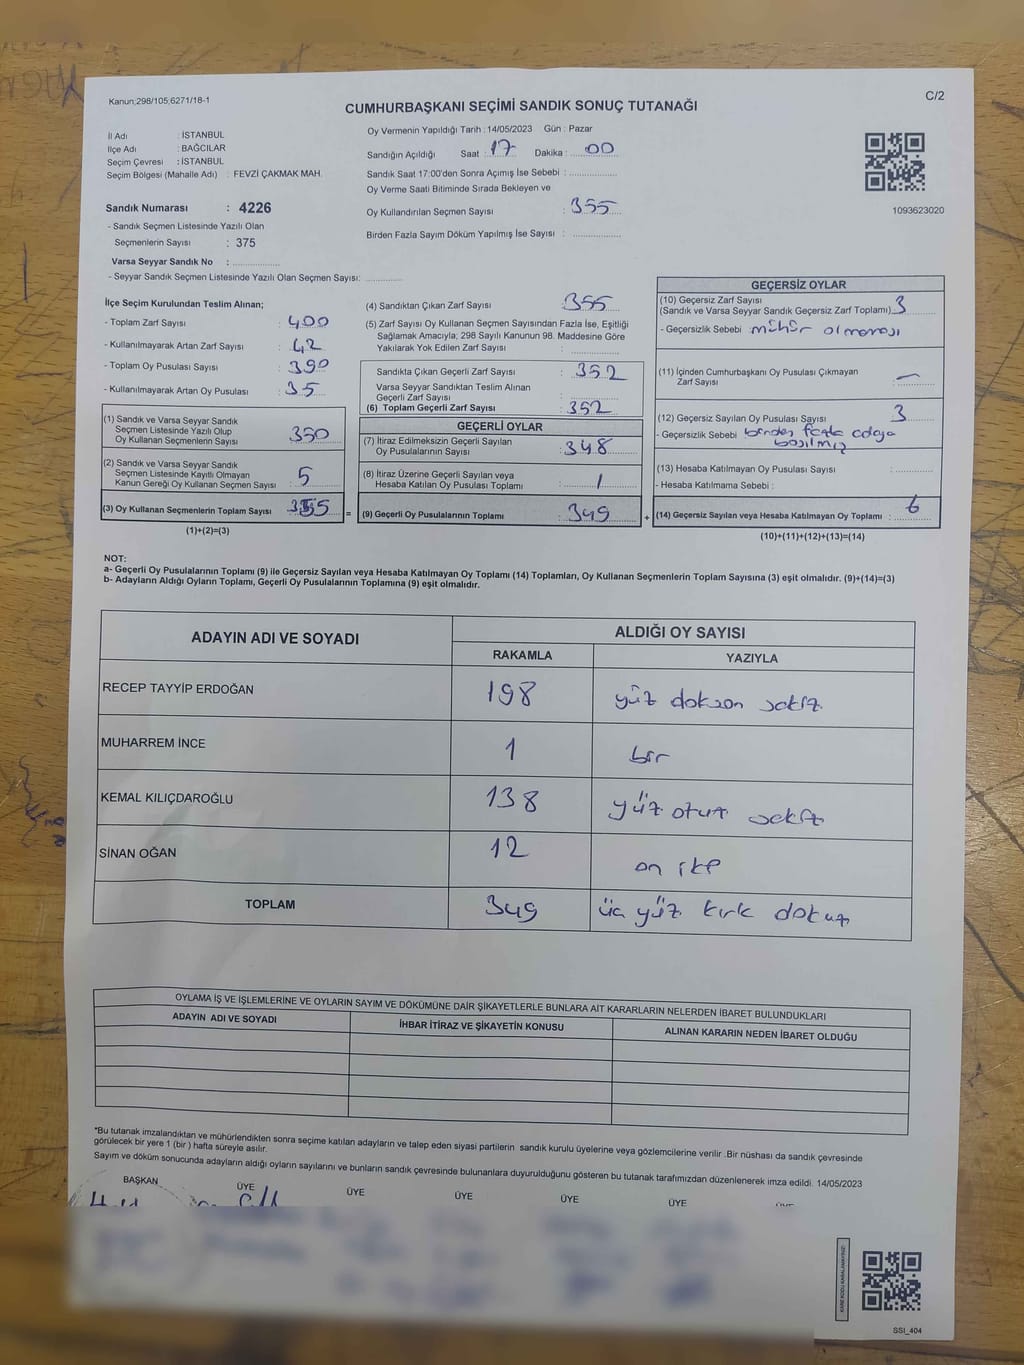 Kanun;298/105;6271/18-1
C/2
CUMHURBAŞKANI SEÇİMİ SANDIK SONUÇ TUTANAĞI
İl Adı : İSTANBUL
İlçe Adı : BAĞCILAR
Seçim Çevresi : İSTANBUL
Seçim Bölgesi (Mahalle Adı) : FEVZİ ÇAKMAK MAH.
Sandık Numarası : 4226
- Sandık Seçmen Listesinde Yazılı Olan
Seçmenlerin Sayısı : 375
Varsa Seyyar Sandık No : ..............
- Seyyar Sandık Seçmen Listesinde Yazılı Olan Seçmen Sayısı: ............
Oy Vermenin Yapıldığı Tarih : 14/05/2023 Gün : Pazar
Sandığın Açıldığı Saat : 17 Dakika : 00
Sandık Saat 17:00'den Sonra Açımış İse Sebebi : ..............
Oy Verme Saati Bitiminde Sırada Bekleyen ve
Oy Kullandırılan Seçmen Sayısı : 355
Birden Fazla Sayım Döküm Yapılmış İse Sayısı : ..............
1093623020
İlçe Seçim Kurulundan Teslim Alınan;
- Toplam Zarf Sayısı : 400
- Kullanılmayarak Artan Zarf Sayısı : 42
- Toplam Oy Pusulası Sayısı : 390
- Kullanılmayarak Artan Oy Pusulası : 35
(1) Sandık ve Varsa Seyyar Sandık
Seçmen Listesinde Yazılı Olup
Oy Kullanan Seçmenlerin Sayısı : 350
(2) Sandık ve Varsa Seyyar Sandık
Seçmen Listesinde Kayıtlı Olmayan
Kanun Gereği Oy Kullanan Seçmen Sayısı : 5
(3) Oy Kullanan Seçmenlerin Toplam Sayısı : 355
(1)+(2)=(3)
(4) Sandıktan Çıkan Zarf Sayısı : 355
(5) Zarf Sayısı Oy Kullanan Seçmen Sayısından Fazla İse, Eşitliği
Sağlamak Amacıyla; 298 Sayılı Kanunun 98. Maddesine Göre
Yakılarak Yok Edilen Zarf Sayısı : ..............
Sandıkta Çıkan Geçerli Zarf Sayısı : 352
Varsa Seyyar Sandıktan Teslim Alınan
Geçerli Zarf Sayısı : ..............
(6) Toplam Geçerli Zarf Sayısı : 352
GEÇERLİ OYLAR
(7) İtiraz Edilmeksizin Geçerli Sayılan
Oy Pusulalarının Sayısı : 348
(8) İtiraz Üzerine Geçerli Sayılan veya
Hesaba Katılan Oy Pusulası Toplamı : 1
= (9) Geçerli Oy Pusulalarının Toplamı : 349
GEÇERSİZ OYLAR
(10) Geçersiz Zarf Sayısı
(Sandık ve Varsa Seyyar Sandık Geçersiz Zarf Toplamı) 3
- Geçersizlik Sebebi mühür olmaması
(11) İçinden Cumhurbaşkanı Oy Pusulası Çıkmayan
Zarf Sayısı : —
(12) Geçersiz Sayılan Oy Pusulası Sayısı : 3
- Geçersizlik Sebebi birden fazla adaya
basılmış
(13) Hesaba Katılmayan Oy Pusulası Sayısı : ..............
- Hesaba Katılmama Sebebi :
+ (14) Geçersiz Sayılan veya Hesaba Katılmayan Oy Toplamı : 6
(10)+(11)+(12)+(13)=(14)
NOT:
a- Geçerli Oy Pusulalarının Toplamı (9) ile Geçersiz Sayılan veya Hesaba Katılmayan Oy Toplamı (14) Toplamları, Oy Kullanan Seçmenlerin Toplam Sayısına (3) eşit olmalıdır. (9)+(14)=(3)
b- Adayların Aldığı Oyların Toplamı, Geçerli Oy Pusulalarının Toplamına (9) eşit olmalıdır.
ADAYIN ADI VE SOYADI
ALDIĞI OY SAYISI
RAKAMLA YAZIYLA
RECEP TAYYİP ERDOĞAN 198 yüz doksan sekiz
MUHARREM İNCE 1 bir
KEMAL KILIÇDAROĞLU 138 yüz otuz sekiz
SİNAN OĞAN 12 on iki
TOPLAM 349 üç yüz kırk dokuz
OYLAMA İŞ VE İŞLEMLERİNE VE OYLARIN SAYIM VE DÖKÜMÜNE DAİR ŞİKAYETLERLE BUNLARA AİT KARARLARIN NELERDEN İBARET BULUNDUKLARI
ADAYIN ADI VE SOYADI İHBAR İTİRAZ VE ŞİKAYETİN KONUSU ALINAN KARARIN NEDEN İBARET OLDUĞU
*Bu tutanak imzalandıktan ve mühürlendikten sonra seçime katılan adayların ve talep eden siyasi partilerin sandık kurulu üyelerine veya gözlemcilerine verilir .Bir nüshası da sandık çevresinde
görülecek bir yere 1 (bir ) hafta süreyle asılır.
Sayım ve döküm sonucunda adayların aldığı oyların sayılarını ve bunların sandık çevresinde bulunanlara duyurulduğunu gösteren bu tutanak tarafımızdan düzenlenerek imza edildi. 14/05/2023
BAŞKAN ÜYE ÜYE ÜYE ÜYE ÜYE ÜYE
SSI_404